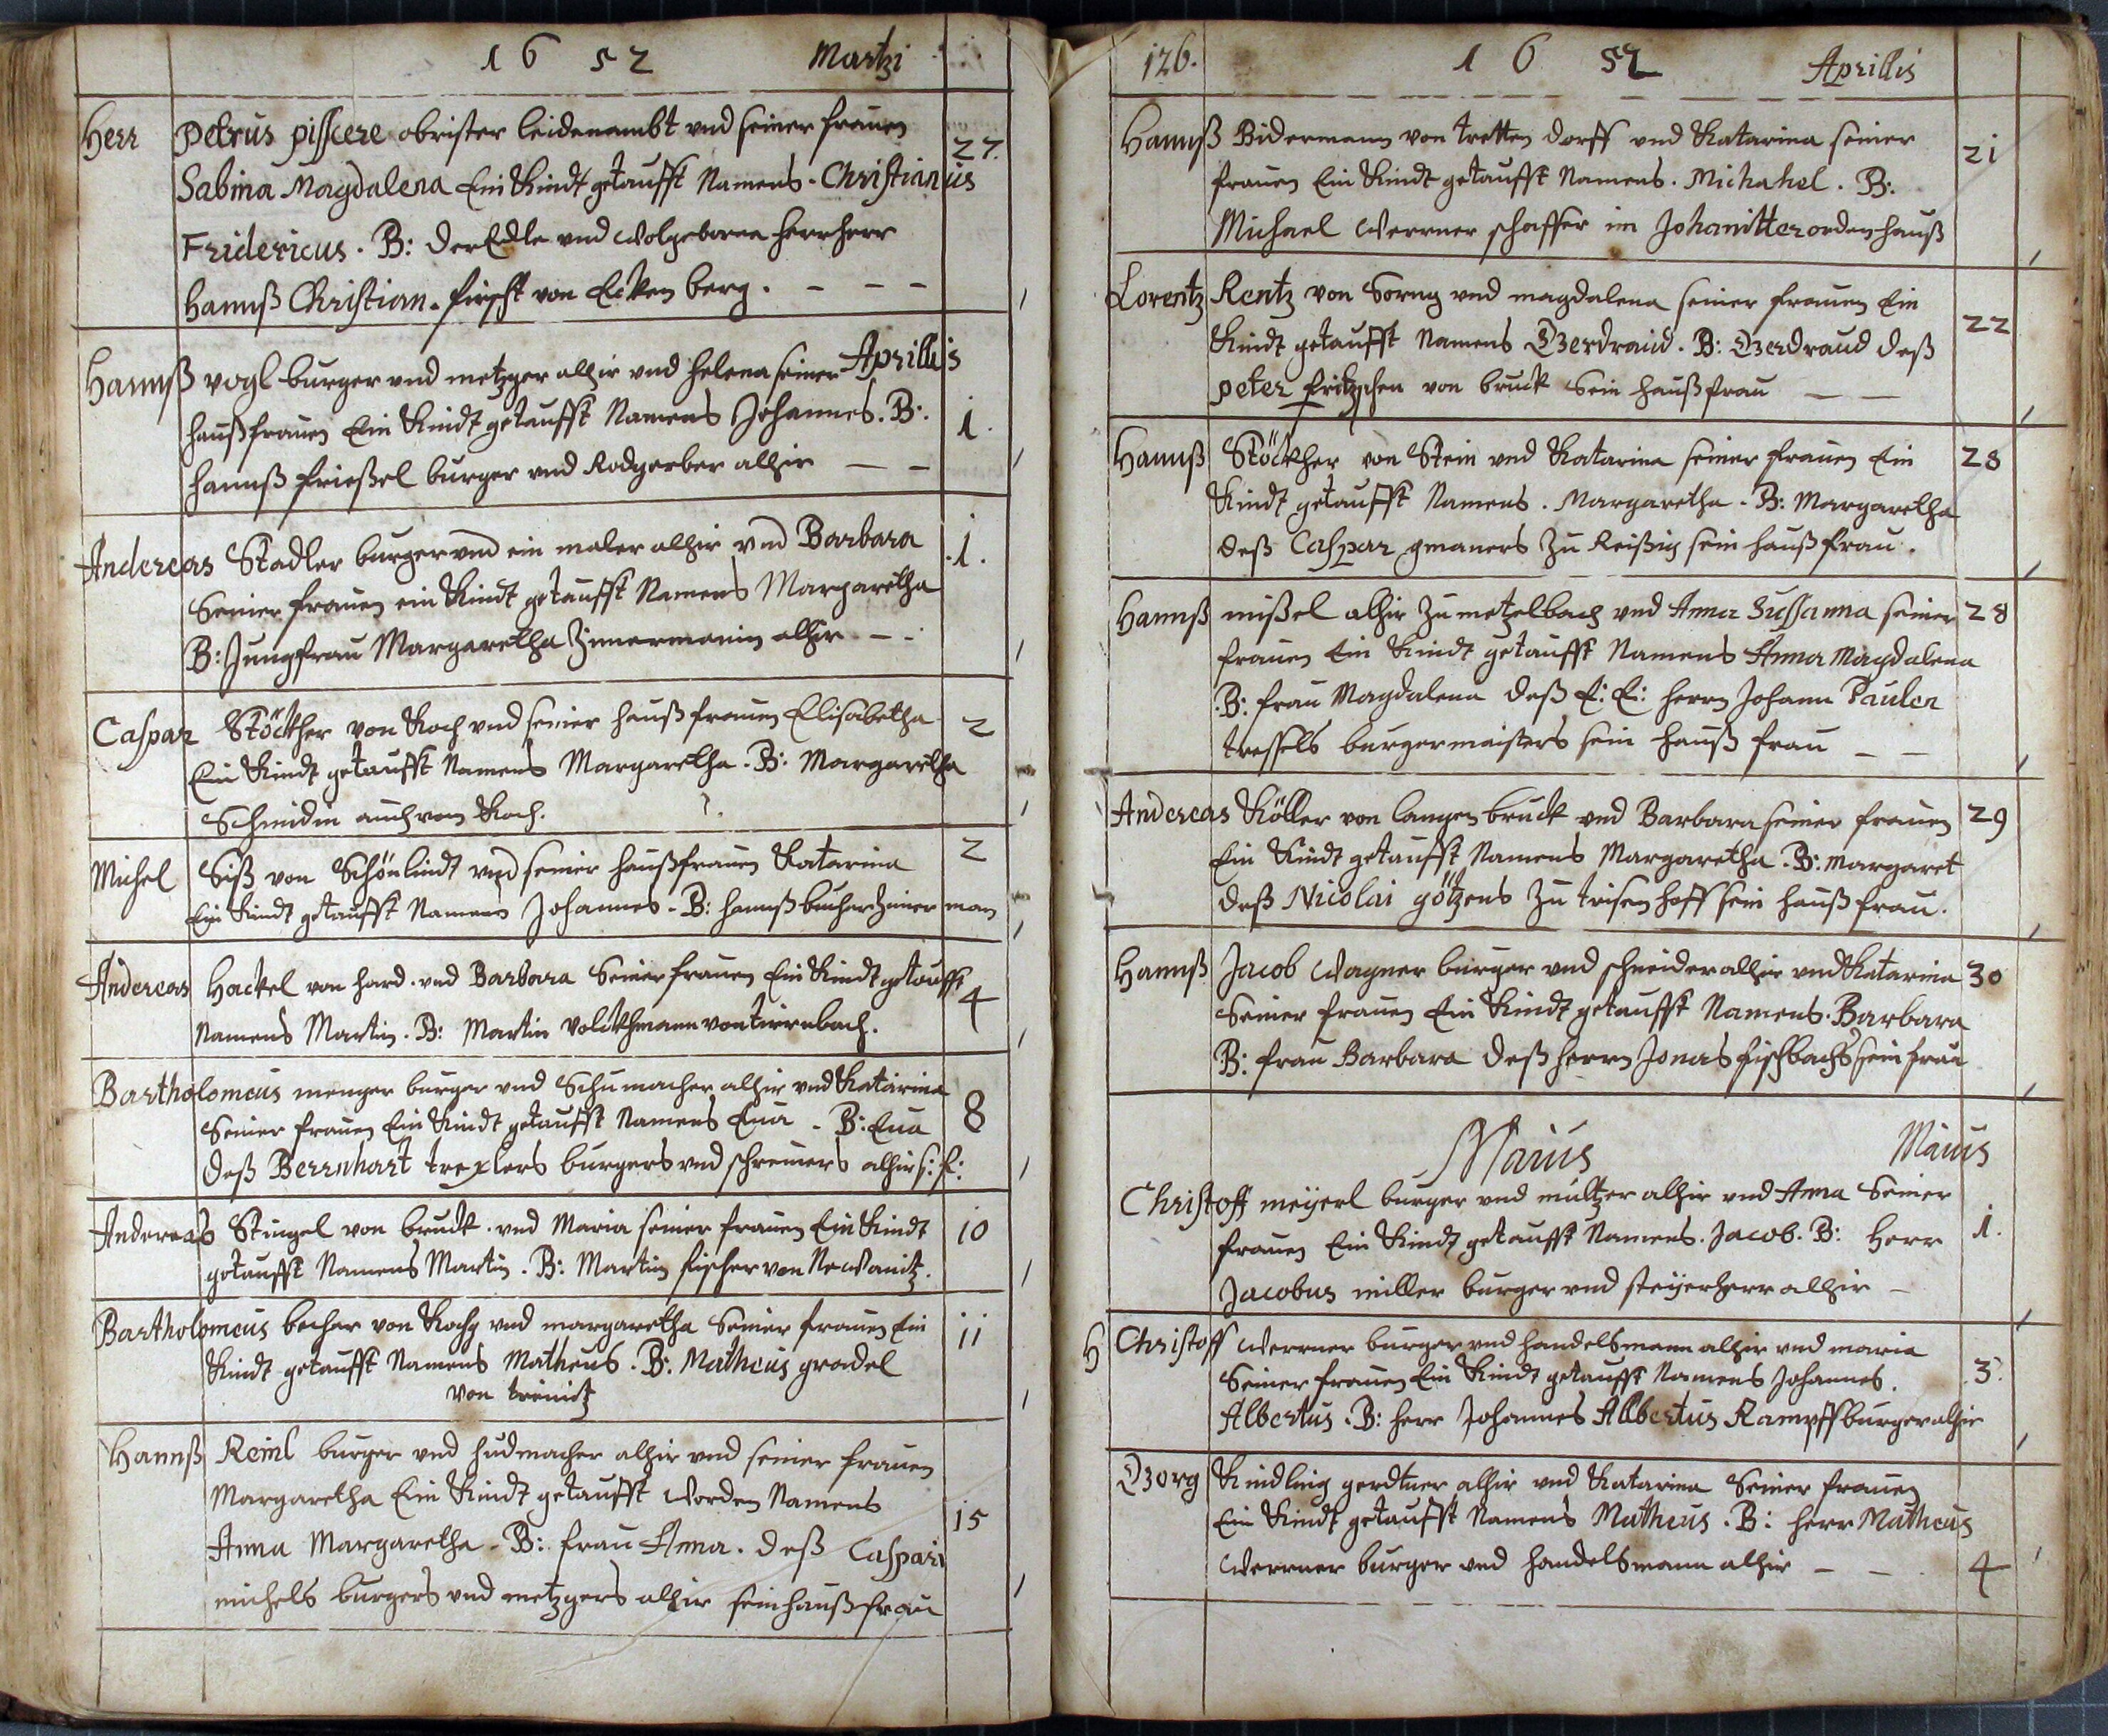 1652 Martzi
Herr Petrus pisscere obrister leidenambt vnd seiner frauen 27.
Sabina Magdalena Ein Kindt getaufft Namens. Christianus
Fridericus. B: der Edle vnd Wolgeborne herr herr
Hannß Christian. fürst von Ecken berg. - - -
Aprillis
Hannß vogl burger vnd metzger alhir vnd helena seiner
haußfrauen Ein Kindt getaufft Namens Johannes. B: 1.
hannß frießel burger vnd Rodgerber alhir - -
Andereas Stadler burger vnd ein maler alhir vnd Barbara .1.
Seiner frauen ein Kindt getaufft Namens Margaretha
B: Jungfrau Margaretha Zimermanin alhir - -
Caspar Stöckher von Koch vnd seiner haußfrauen Elisabetha 2
Ein Kindt getaufft Namens Margaretha. B: Margaretha
Schmidin auch von Koch.
Michel Siß von Schönlindt vnd seiner haußfrauen Katarina 2
Ein Kindt getaufft Namens Johannes. B: hannß bucher Zimerman
Andereas Hackel von hard. vnd Barbara Seiner frauen Ein Kindt getaufft 4
Namens Martin. B: Martin Volckhmann von tirrnbach.
Bartholomeus menger burger vnd Schumacher alhir vnd Katarina
Seiner frauen Ein Kindt getaufft Namens Eua. B: Eua 8
deß Berrnhart trexlers burgers vnd schreiners alhir s: f:
Andereas Stingel von bruck. vnd Maria seiner frauen Ein Kindt 10
getaufft Namens Martin. B: Martin fischer von Newanitz.
Bartholomeus becher von Kochg vnd margaretha Seiner frauen Ein 11
Kindt getaufft Namens Matheus. B: Matheus gradel
von treinitz
Hannß Reinl burger vnd hudmacher alhir vnd seiner frauen
Margaretha Ein Kindt getaufft worden Namens 15
Anna Margaretha. B: frau Anna. deß Caspari
michels burgers vnd metzgers alhir sein haußfrau
126. 1652 Aprillis
Hannß Bidermann von tretten dorff vnd Katarina seiner 21
frauen Ein Kindt getaufft Namens. Michahel. B:
Michael Werrner schaffer im Johanitter orden hauß
Lorentz Rentz von Sorng vnd magdalena seiner frauen Ein 22
Kindt getaufft Namens Gerdraud. B: Gerdraud deß
peter fritzschen von bruck Sein haußfrau - -
Hannß Stöckher von Stein vnd Katarina seiner frauen Ein 28
Kindt getaufft Namens. Margaretha. B: Margaretha
deß Caspar gmaners Zu Reißig sein haußfrau.
Hannß mißel alhir Zu metzelbach vnd Anna Sussanna seiner 28
frauen Ein Kindt getaufft Namens Anna Magdalena
B: frau Magdalena deß E: E: herrn Johann Paulen
tressels burgermaisters sein hauß frau - -
Andereas Köller von langen bruck vnd Barbara seiner frauen 29
Ein Kindt getaufft Namens Margaretha. B: Margaret
deß Nicolai götzens Zu trisenhoff sein hauß frau.
Hannß Jacob Wagner burger vnd schneider alhir vnd Katarina 30
Seiner frauen Ein Kindt getaufft Namens. Barbara
B: frau Barbara deß herrn Jonas fischbachs sein frau
Maius Maius
Christoff meyerl burger vnd mültzer alhir vnd Anna Seiner
frauen Ein Kindt getaufft Namens. Jacob. B: Herr 1.
Jacobus miller burger vnd steyerherr alhir -
H Christoff Werrner burger vnd handelsmann alhir vnd maria
Seiner frauen Ein Kindt getaufft Namens Johannes. 3.
Albertus. B: herr Johannes Allbertus Rampff burger alhir
Georg Kindling gerdtner alhir vnd Katarina Seiner frauen
Ein Kindt getaufft Namens Matheus. B: herr Matheus
Werrner burger vnd handelsmann alhir - - 4